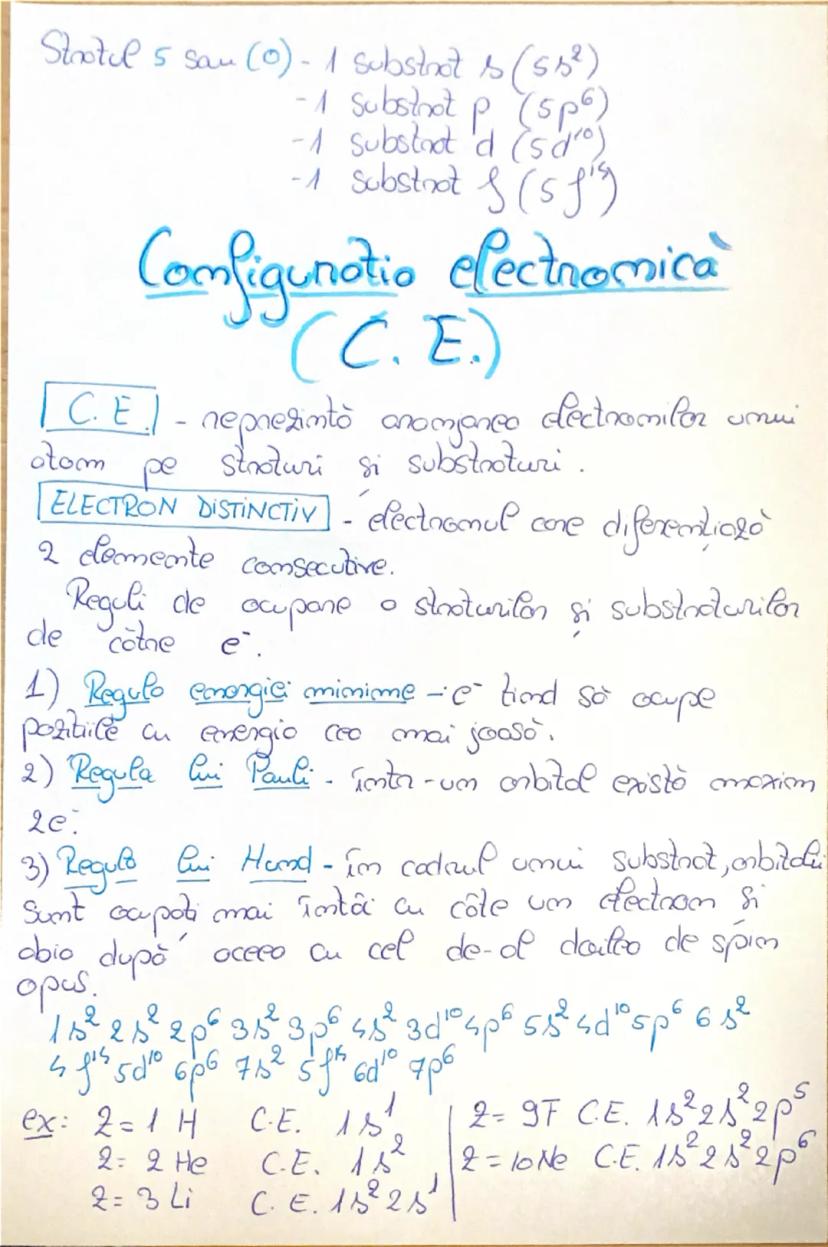 Stratul 5 sau (O) - 1 substrat s (5s²)
-1 substrat p (5p⁶)
-1 substrat d (5d¹⁰)
-1 substrat f (5f¹⁴)
Configurația electronică
(C.E.)
C.E. - reprezintă aranjarea electronilor unui
atom pe straturi și substraturi.
ELECTRON DISTINCTIV - electronul care diferențiază
2 elemente consecutive.
Reguli de ocupare a straturilor și substraturilor
de către e⁻.
1) Regula energiei minime - e⁻ tind să ocupe
pozițiile cu energia cea mai joasă.
2) Regula lui Pauli - într-un orbital există maxim
2e⁻.
3) Regula lui Hund - în cadrul unui substrat, orbitalii
sunt ocupați mai întâi cu câte un electron și
abia după aceea cu cel de-al doilea de spin
opus.
1s² 2s² 2p⁶ 3s² 3p⁶ 4s² 3d¹⁰ 4p⁶ 5s² 4d¹⁰ 5p⁶ 6s²
4f¹⁴ 5d¹⁰ 6p⁶ 7s² 5f¹⁴ 6d¹⁰ 7p⁶
ex: Z=1 H C.E. 1s¹
Z=2 He C.E. 1s²
Z=3 Li C.E. 1s² 2s¹
Z=9F C.E. 1s² 2s² 2p⁵
Z=10Ne C.E. 1s² 2s² 2p⁶